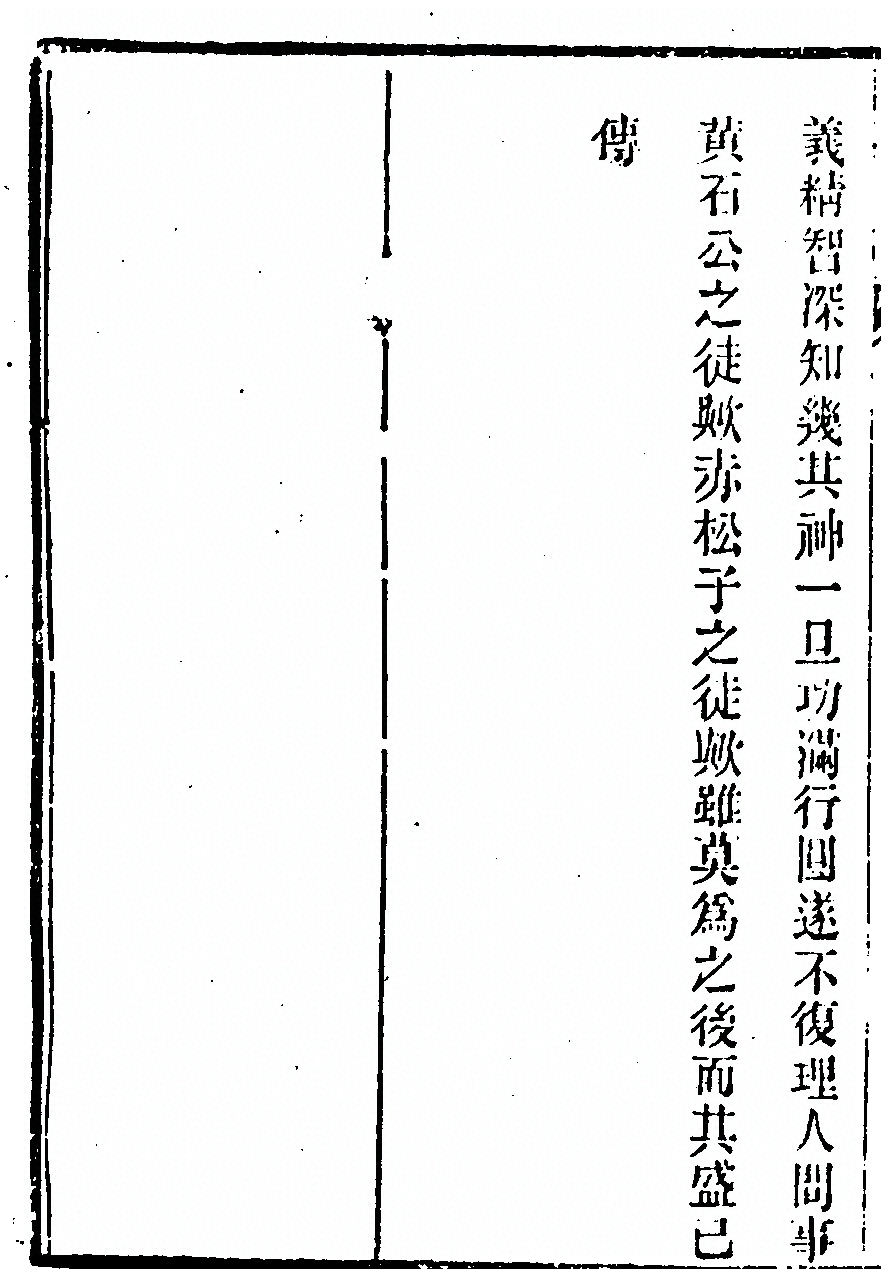 義精智深知幾其神一旦功滿行圓遂不復理人間事
黄石公之徒歟赤松子之徒歟雖莫爲之後而其盛已
傳